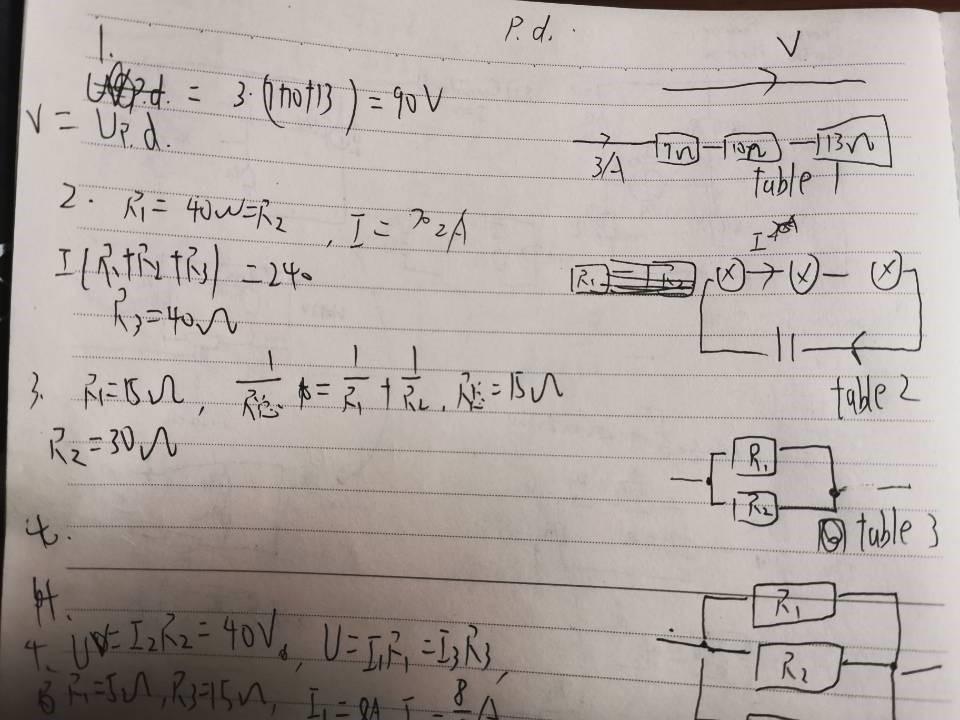 P.d.
1.
P.d. = 3·(7+10+13) = 90V
V = U P.d.
V
3/A
7Ω
10Ω
13Ω
table 1
2. R₁ = 40Ω = R₂, I = 2A
I(R₁+R₂+R₃) = 240
R₃ = 40Ω
R₁
R₂
I
table 2
3. R₁=15Ω, 1/R总 = 1/R₁ + 1/R₂, R总=15Ω
R₂=30Ω
R₁
R₂
table 3
4.
4. U = I₂R₂ = 40V, U = I₁R₁ = I₃R₃,
R₁=5Ω, R₃=15Ω, I₁=8A
R₁
R₂